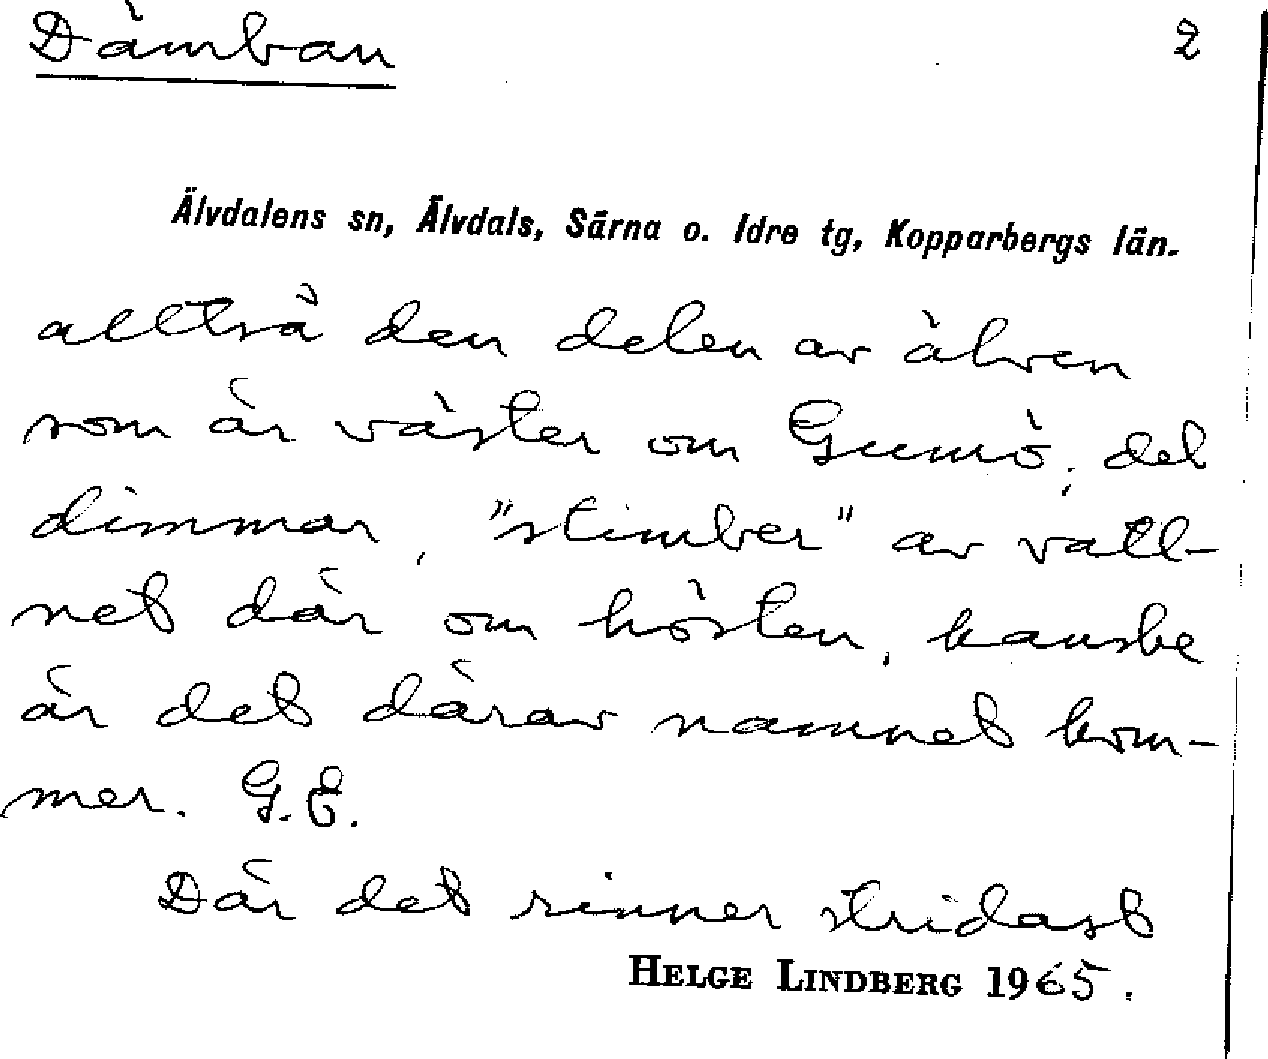 Dämban 2
Älvdalens sn, Älvdals, Särna o. Idre tg, Kopparbergs län.
alltså den delen av älven
som är väster om Gumö; det
dimmar, "stimber" av vatt-
net där om hösten, kanske
är det därav namnet kom-
mer. G.E.
Där det rinner stridast
HELGE LINDBERG 1965.